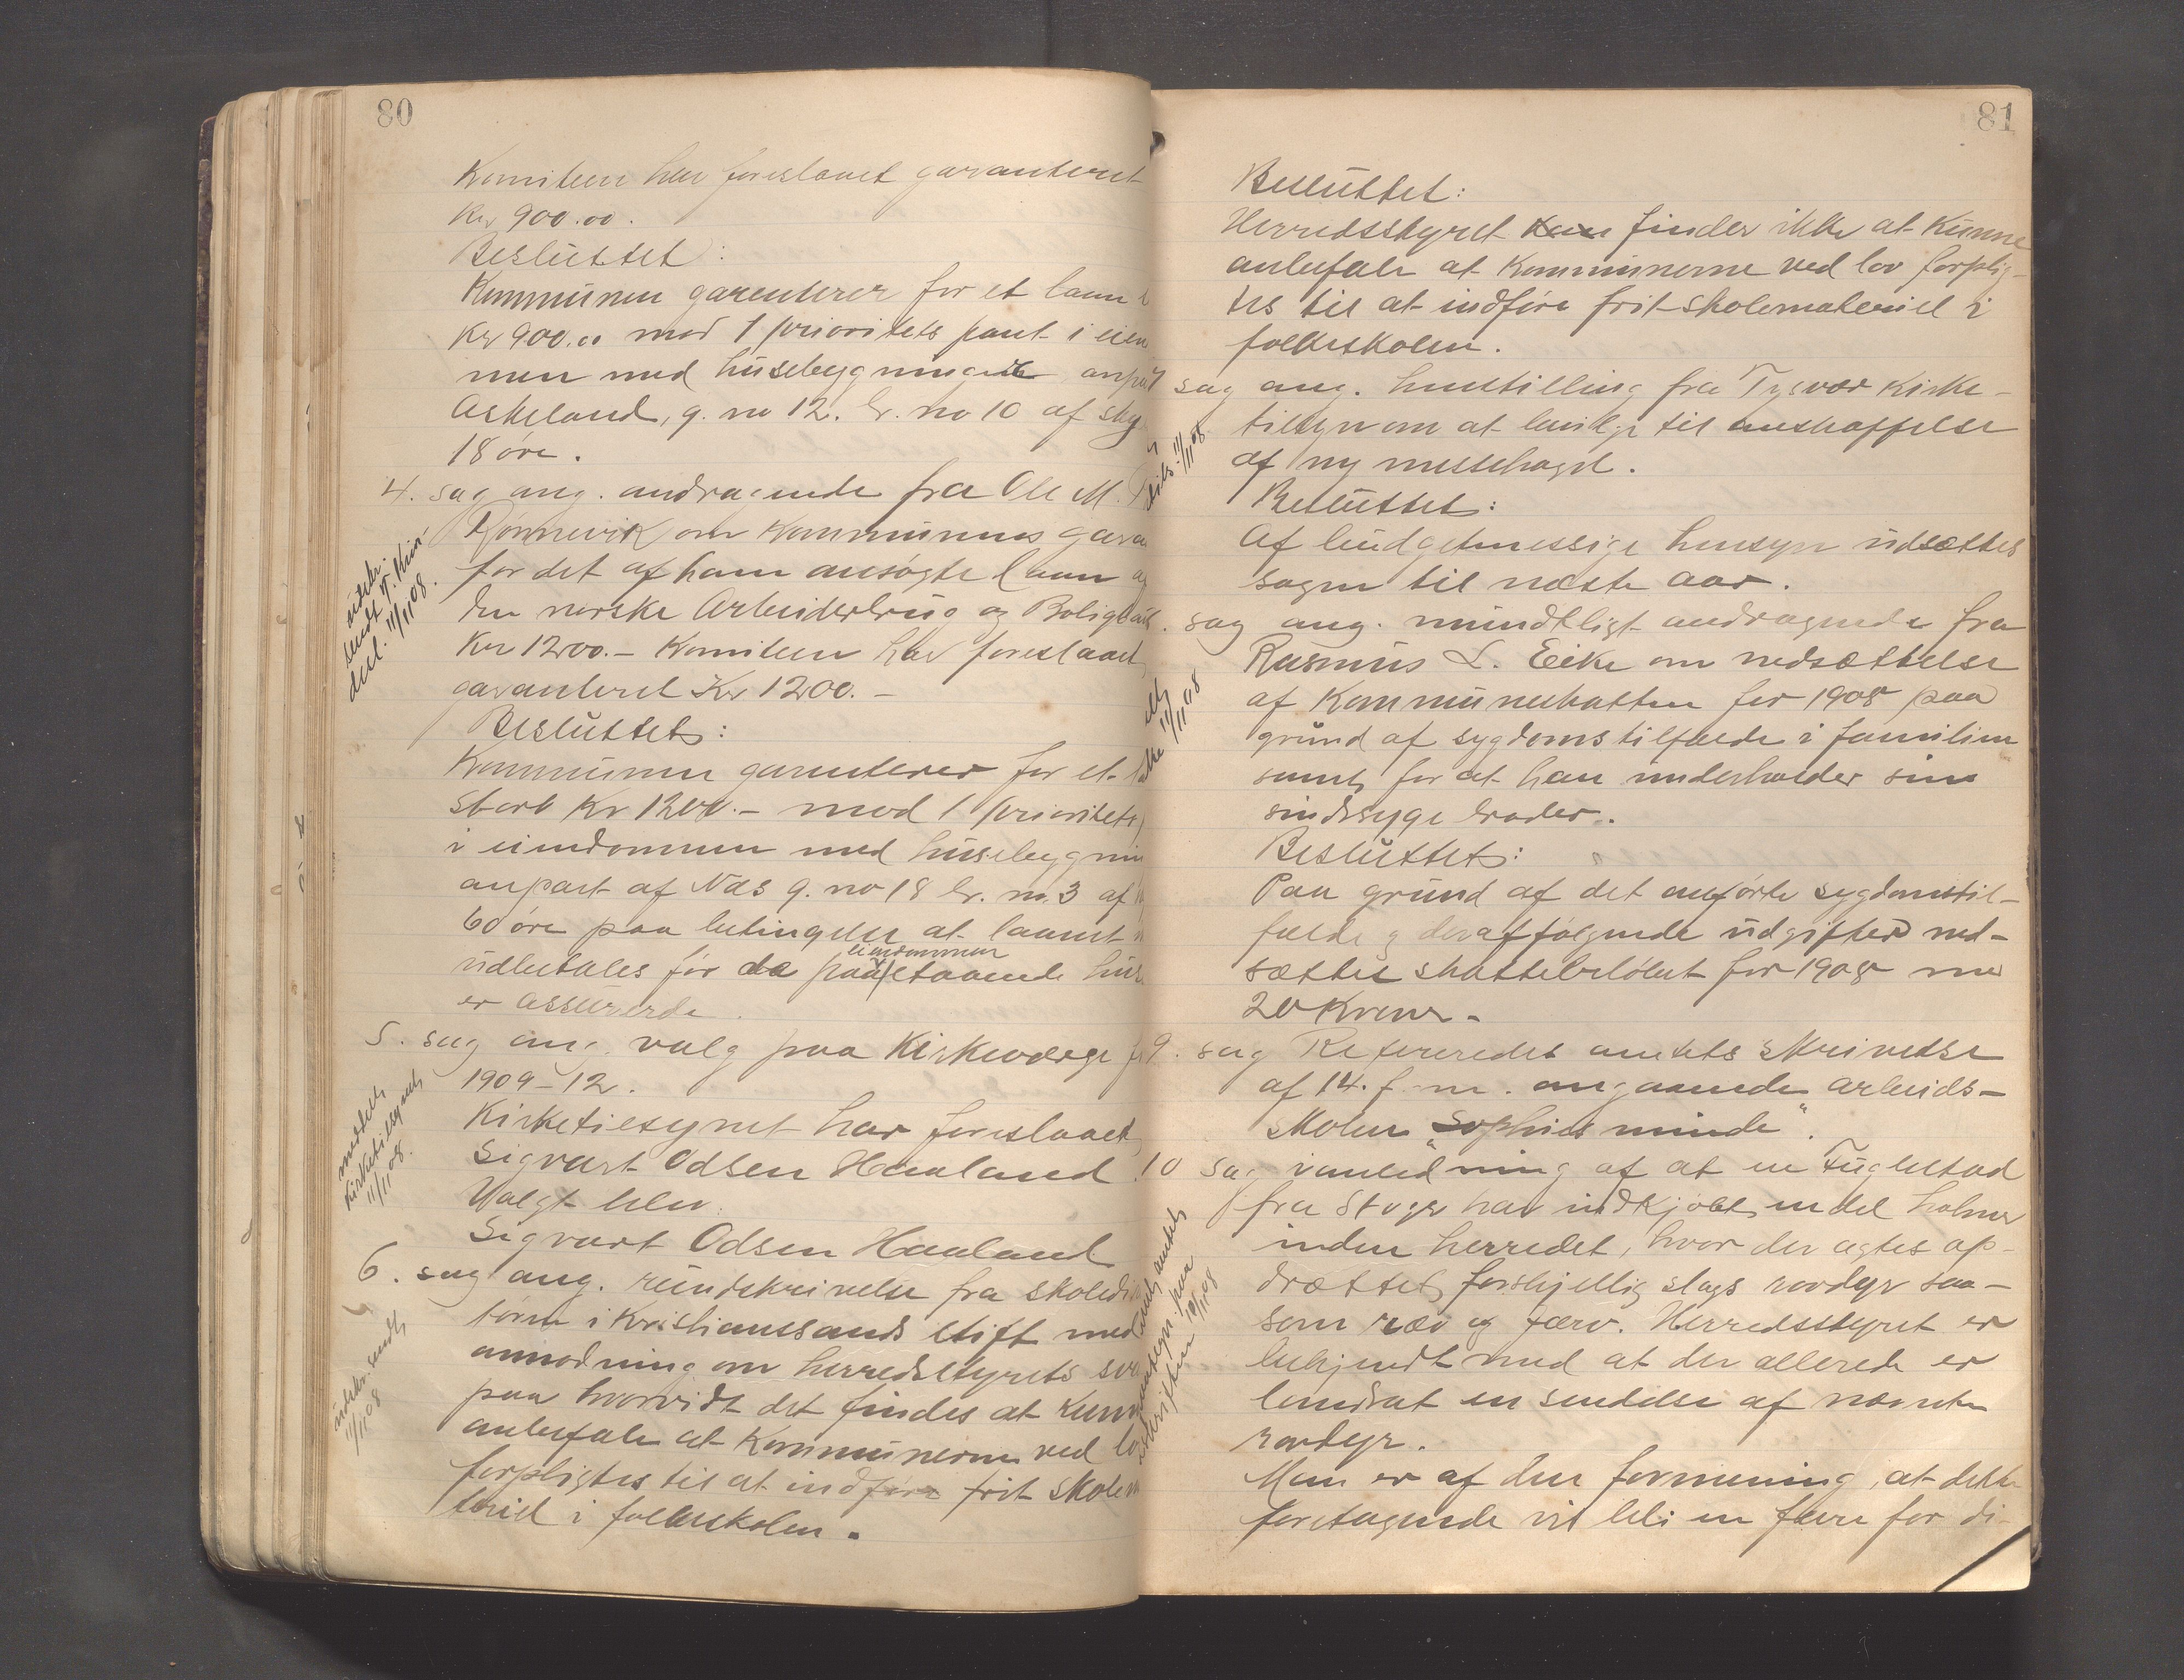 80
Komiteen har foreslaaet garanteret
Kr 900.00.
Besluttet:
Kommunen garenterer for et laan
Kr 900.00 mod 1 prioritets pant i eien
men med husebygningen anpart
Askeland, g. no 12. br. no 10 af sky
18 øre.
4. sag ang. andragende fra Ole M.
Rönnevik om kommunens garan
for det af ham ansøgte laan a
den norske Arbeiderbrug og Boligbank
Kr 1200.- Komiteen har foreslaaet
garanteret Kr 1200.-
Besluttet:
Kommunen garenterer for et
stort Kr 1200.- mod 1 prioritets
i eiendommen med husebygnin
anpart af Nes g. no 18 br. no. 3 af
60 øre paa betingelse at laanet
udbetales før de paa eiendommen staaende huse
er assurerede.
5. sag ang. valg paa Kirkeværge for
1909-12.
Kirketilsynet har foreslaaet
Sigvart Odsen Haaland.
Valgt blev:
Sigvart Odsen Haaland
6. sag ang. rundskrivelse fra skoledi
tøren i Kristianssands stift med
anmodning om herredstyrets sva
paa hvorvidt det findes at kunn
anbefale at Kommunerne ved lo
forpligtes til at indføre frit skolem
teriel i folkeskolen.
udskr.
sendt
11/11 08.
meddelt
Kirketilsynet
11/11 08.
udskr. sendt
11/11 08
81
Besluttet:
Herredsstyret kan finder ikke at kunne
anbefale at kommunerne ved lov forplig-
tes til at indføre frit skolemateriel i
folkeskolen.
7 sag ang. henstilling fra Tysvær Kirke-
tilsyn om at bevilge til anskaffelse
af ny messehagel.
Besluttet:
Af budgetmessige hensyn udsættes
sagen til næste aar.
sag ang. mundtligt andragende fra
Rasmus L. Eike om nedsættelse
af Kommuneskatten for 1908 paa
grund af sygdomstilfælde i familien
samt for at han underholder sin
sindssyge broder.
Besluttet:
Paa grund af det anførte sygdomstil-
fælde og deraf følgende udgifter ned-
sættes skattebeløbet for 1908 med
20 Kroner-
9. sag Refereredes amtets skrivelse
af 14. f. m. angaaende arbeids-
skolen "Sophies minde".
10 sag i anledning af at en Fuglestad
fra Stoger har indkjøbt en del holmer
inden herredet, hvor der agtes op-
drættet forskjellig slags rovdyr saa-
som ræv og jærv. Herredsstyret er
bekjendt med at der allerede er
landsat en sendelse af nævnte
rovdyr.
Man er af den formening, at dette
foretagende vil bli en fare for di-
11/11 08
11/11 08
10/11 08